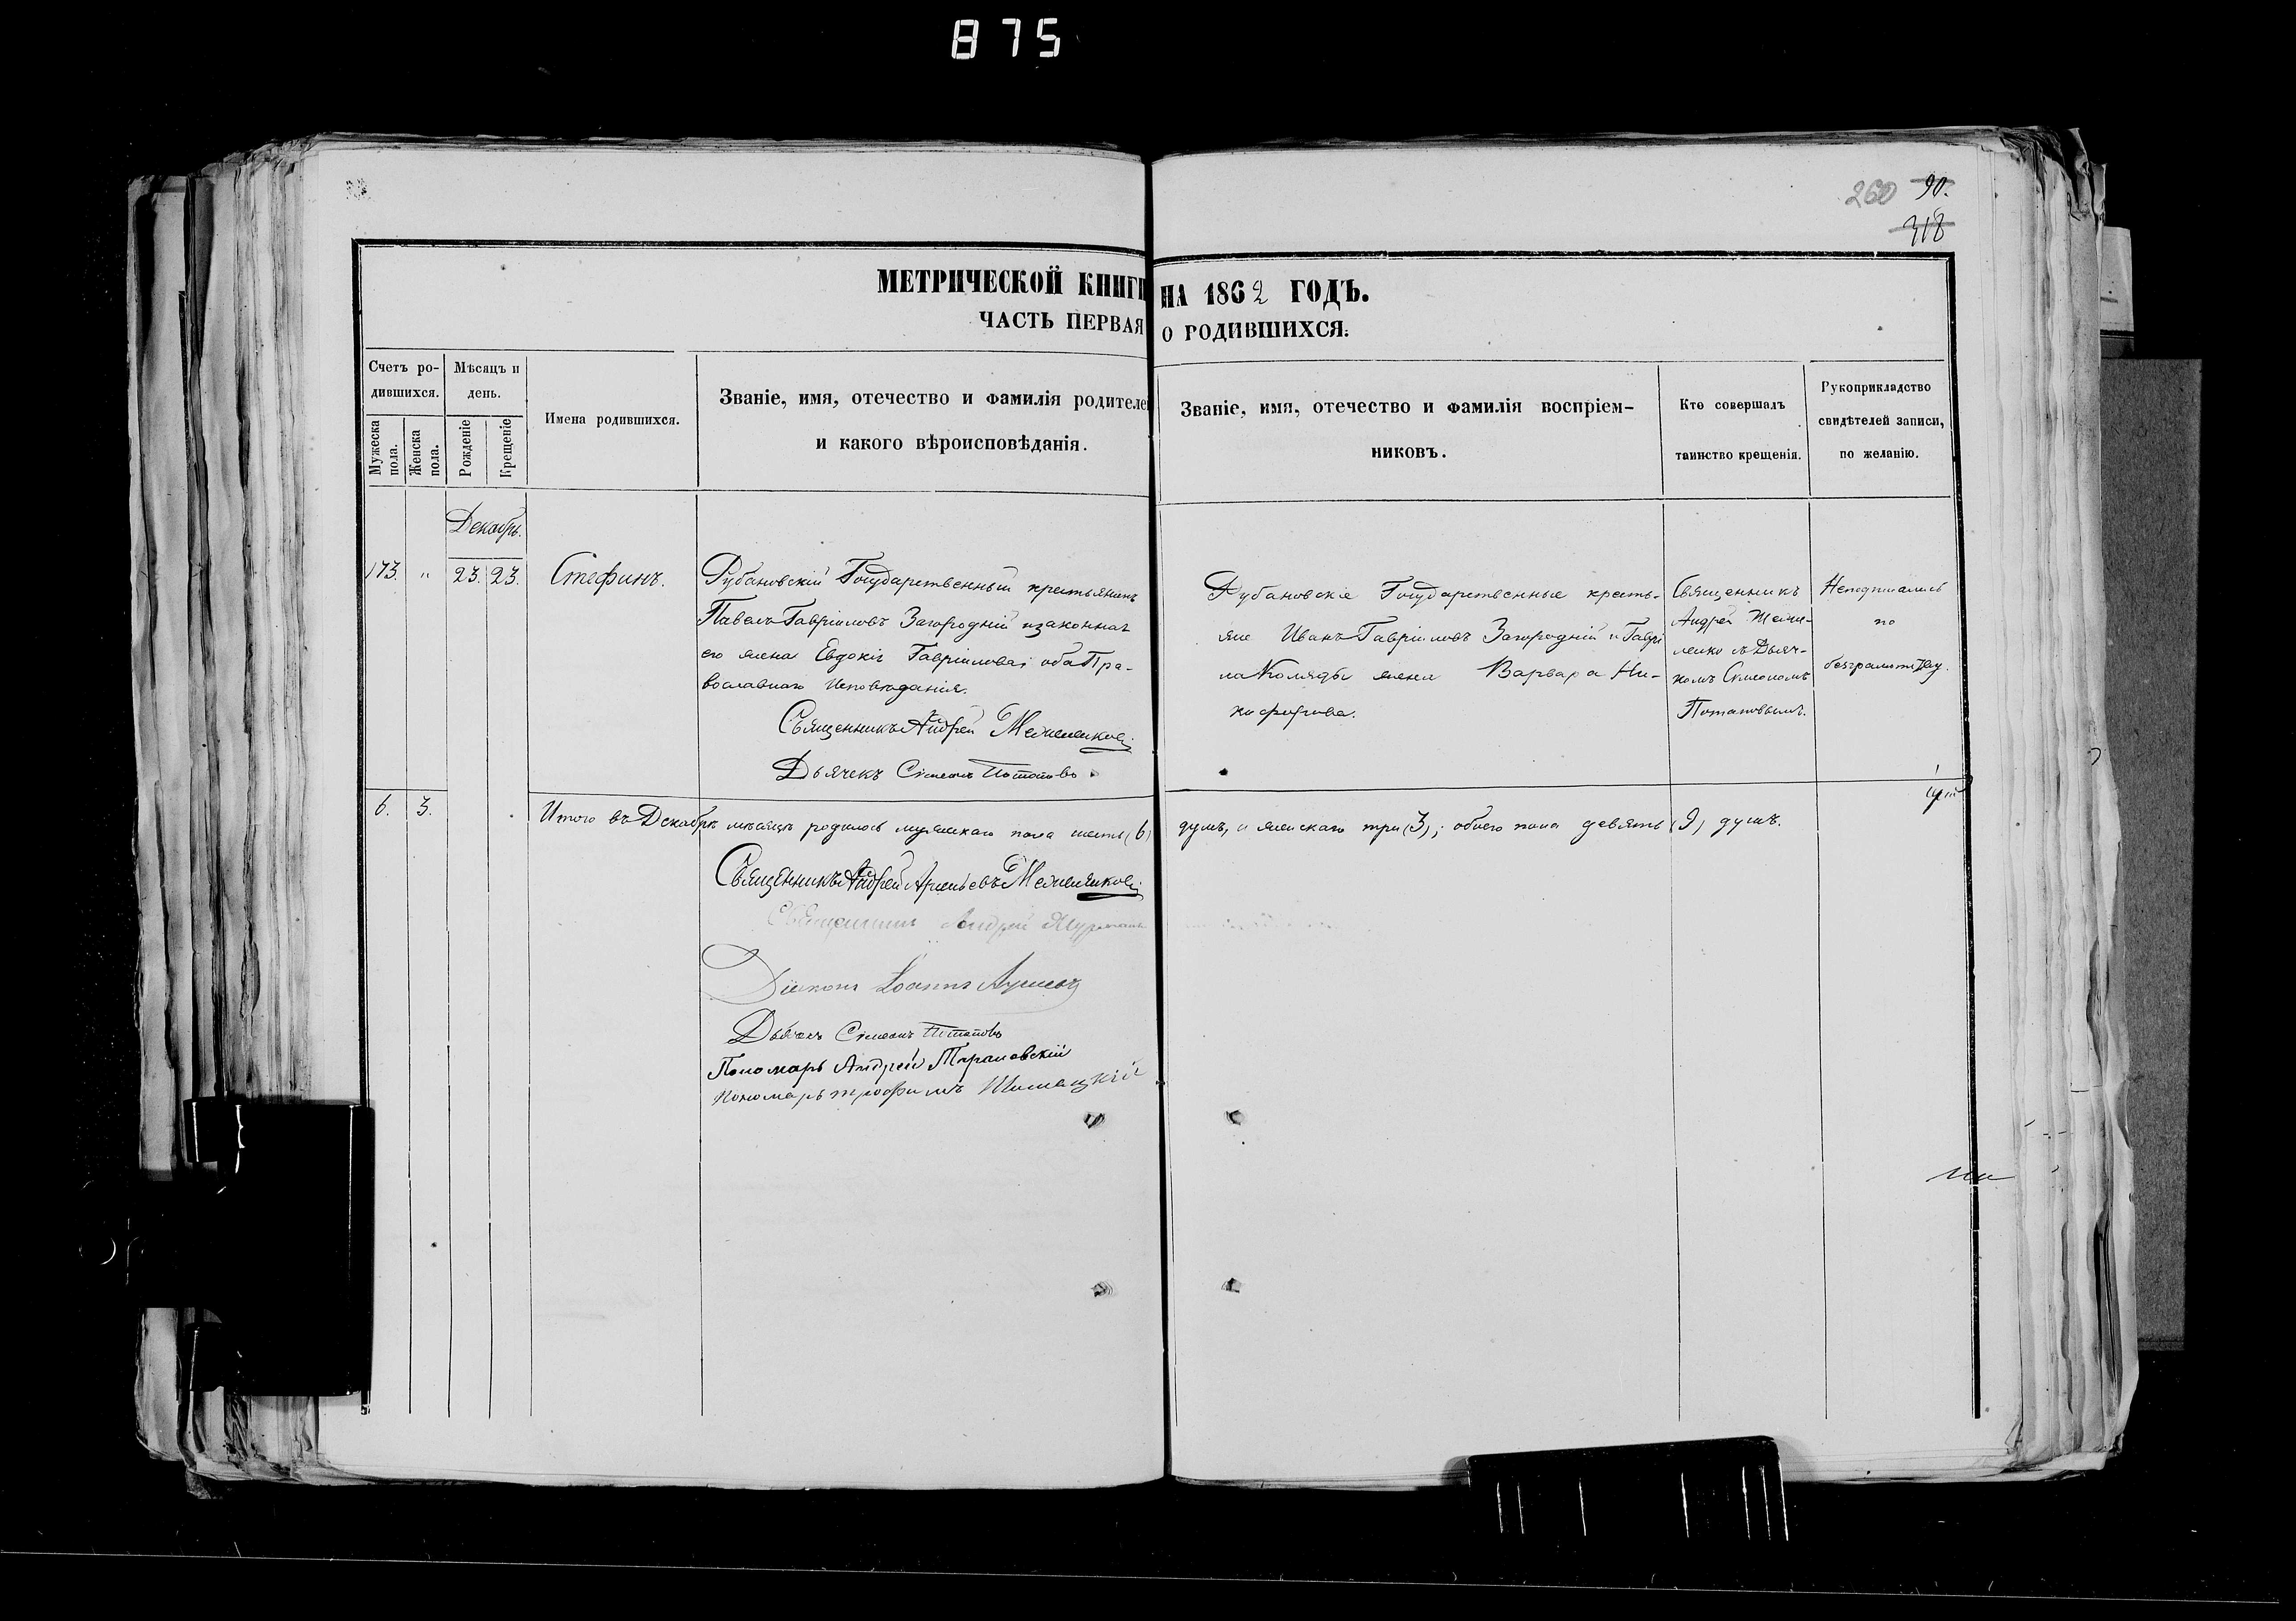 875
260 90.
318
МЕТРИЧЕСКОЙ КНИГИ НА 1862 ГОДЪ.
ЧАСТЬ ПЕРВАЯ О РОДИВШИХСЯ.
Счетъ родившихся.
Мужеска пола.
Женска пола.
Мѣсяцъ и день.
Рожденіе
Крещеніе
Имена родившихся.
Званіе, имя, отечество и фамилія родителе
и какого вѣроисповѣданія.
Званіе, имя, отечество и фамилія воспріем-
никовъ.
Кто совершалъ
таинство крещенія.
Рукоприкладство
свидѣтелей записи,
по желанію.
Декабрь.
173. " 23. 23. Стефанъ.
Рубановскій Государственный крестьянинъ
Павелъ Гавріиловъ Загородній и законная
его жена Евдокія Гавріилова; оба Пра-
вославнаго Исповѣданія.
Священникъ Андрей
Дьячекъ Симеонъ Потаповъ
Рубановскіе Государственные кресть-
яне Иванъ Гавріиловъ Загородній и Гаврі
ила Коляды жена Варвара Ни-
кифорова.
Священникъ
Андрей
съ Дьяч-
комъ Симеономъ
Потаповымъ.
Неподписались
по
безграмотству.
6. 3. Итого въ Декабрѣ мѣсяцѣ родилось мужскаго пола шесть (6) душъ, и женскаго три (3); обоего пола девять (9) душъ.
Священникъ Андрей
Священникъ Андрей
Діаконъ Іоаннъ
Дьячекъ Симеонъ Потаповъ
Пономарь Андрей Тарановскій
Пономарь Трофимъ